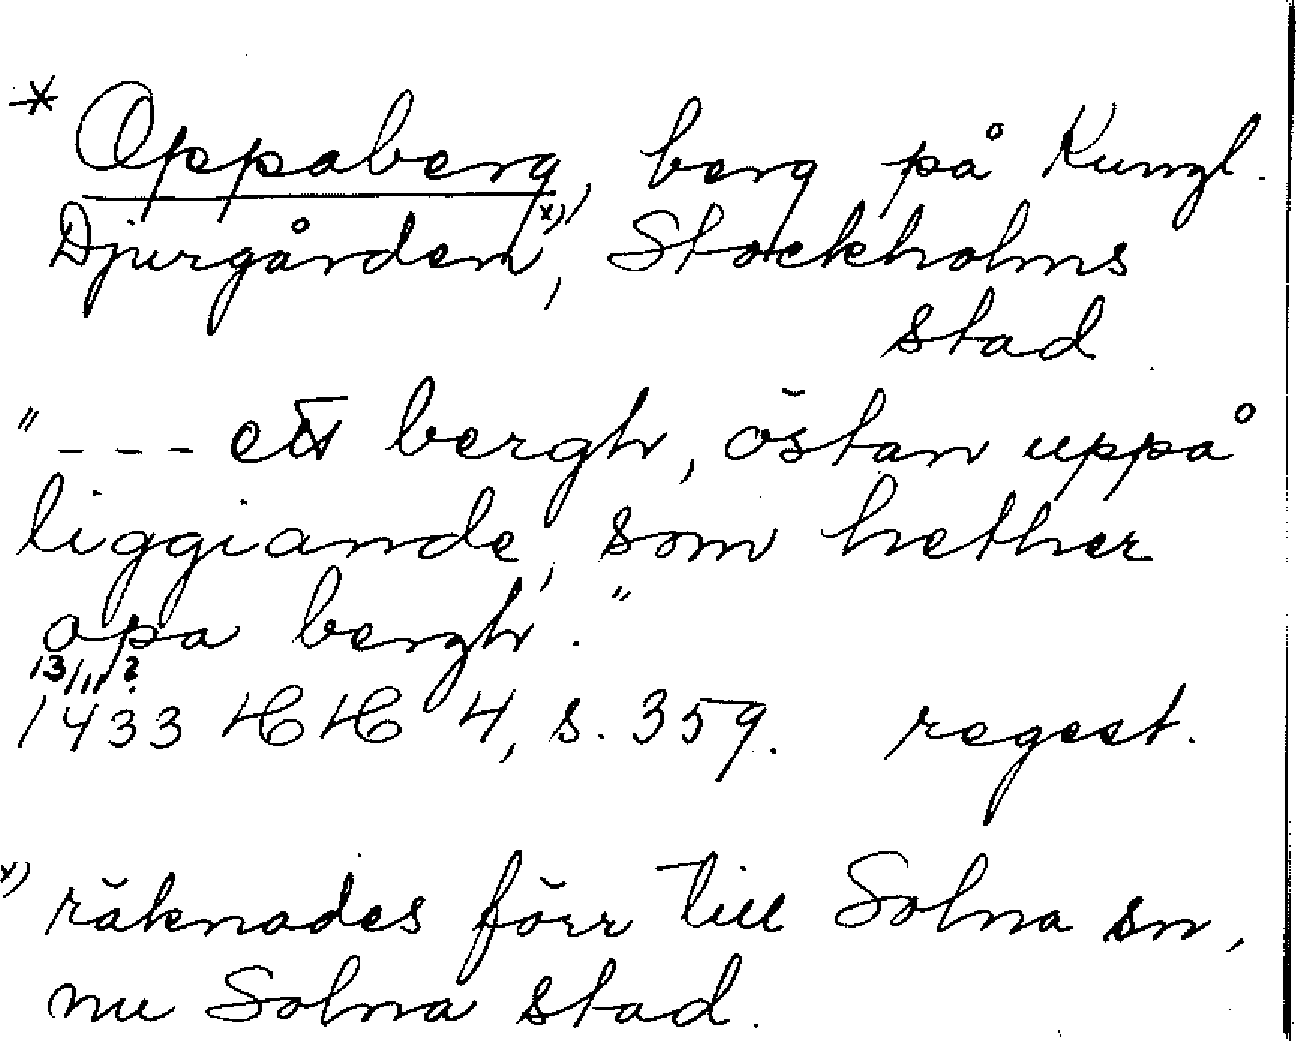 * Oppaberg, berg på Kungl.
Djurgården x), Stockholms
stad
"--- ett bergh, östan uppå
liggiande, som hether
opa bergh."
13/11 ?
1433 HH 4, s. 359. regest.
x) räknades förr till Solna sn,
nu Solna stad.